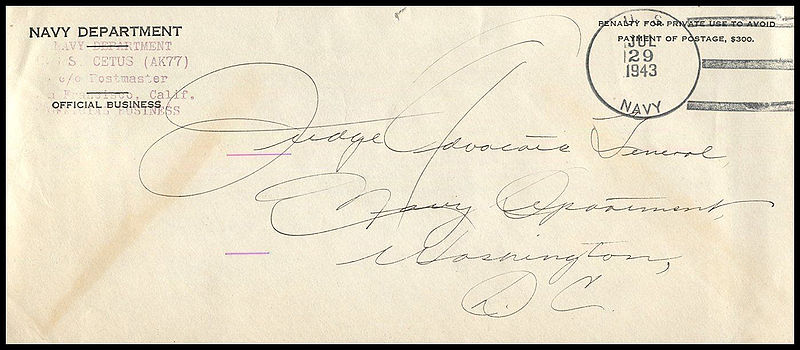 NAVY DEPARTMENT
NAVY DEPARTMENT
S. CETUS (AK77)
c/o Postmaster
Francisco, Calif.
OFFICIAL BUSINESS
OFFICIAL BUSINESS
PENALTY FOR PRIVATE USE TO AVOID
PAYMENT OF POSTAGE, $300.
U. S.
JUL
29
1943
NAVY
Judge Advocate General
Navy Department,
Washington,
D. C.